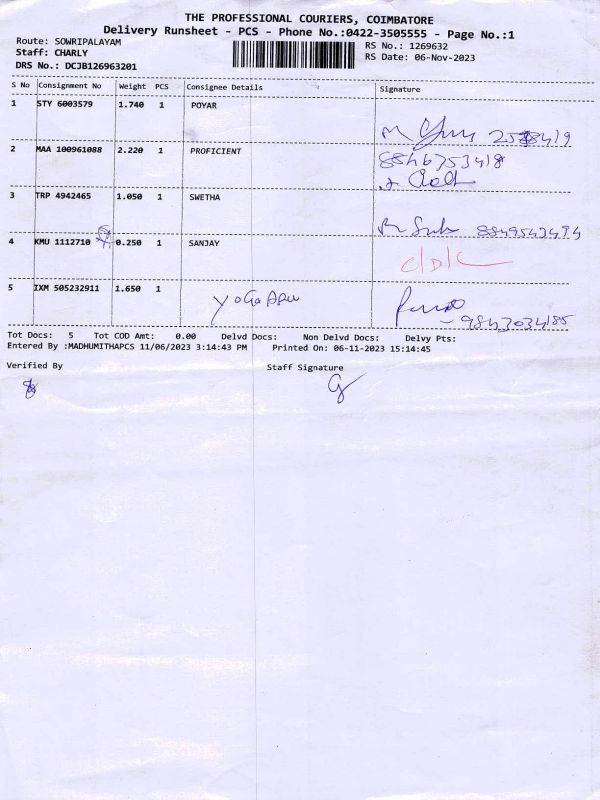 THE PROFESSIONAL COURIERS, COIMBATORE
Delivery Runsheet - PCS - Phone No.:0422-3505555 - Page No.:1
Route: SOWRIPALAYAM RS No.: 1269632
Staff: CHARLY RS Date: 06-Nov-2023
DRS No.: DCJB126963201
S No Consignment No Weight PCS Consignee Details Signature
1 STY 6003579 1.740 1 POYAR
2 MAA 100961088 2.220 1 PROFICIENT
3 TRP 4942465 1.050 1 SWETHA
4 KMU 1112710 0.250 1 SANJAY
5 IXM 505232911 1.650 1
Tot Docs: 5 Tot COD Amt: 0.00 Delvd Docs: Non Delvd Docs: Delvy Pts:
Entered By :MADHUMITHAPCS 11/06/2023 3:14:43 PM Printed On: 06-11-2023 15:14:45
Verified By Staff Signature